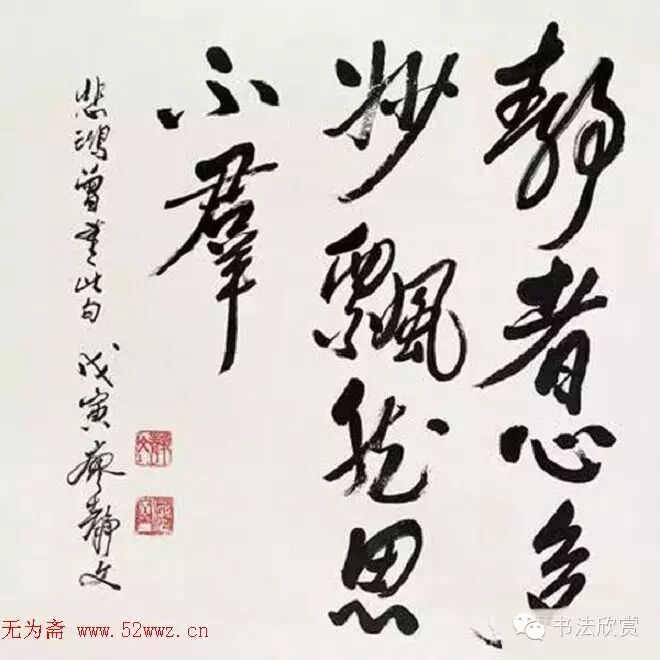 静者心多
妙飘然思
不群
悲鸿曾书此句 戊寅 廖静文
无为斋 www.52wwz.cn
书法欣赏